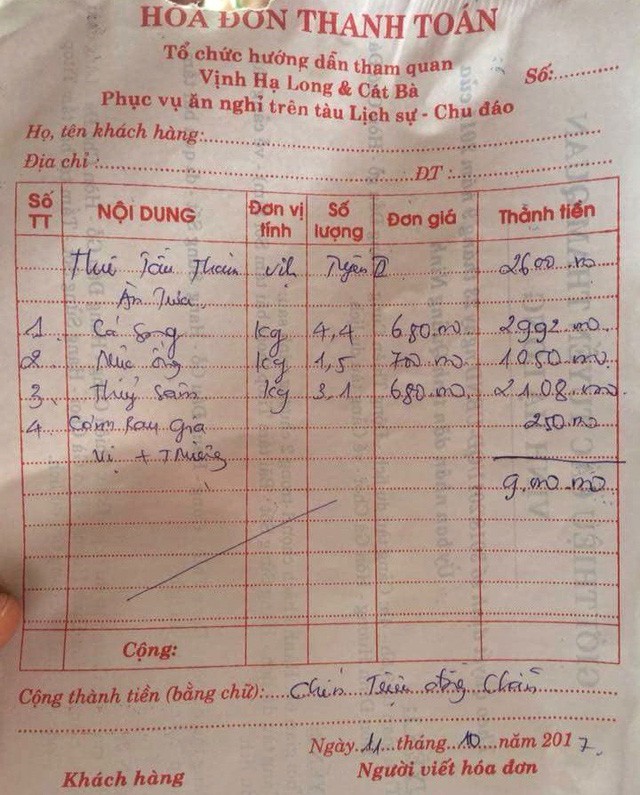 HÓA ĐƠN THANH TOÁN
Tổ chức hướng dẫn tham quan
Vịnh Hạ Long & Cát Bà
Số:
Phục vụ ăn nghỉ trên tàu Lịch sự - Chu đáo
Họ, tên khách hàng:
Địa chỉ : ĐT :
Số TT NỘI DUNG Đơn vị tính Số lượng Đơn giá Thành tiền
Thuê Tầu Thăm Vịnh Tuyến II 2600.000
Ăn Trưa
1 Cá Song kg 4,4 680.000 2992.000
2 Mực ống kg 1,5 700.000 1050.000
3 Thuỷ Sâm kg 3,1 680.000 2108.000
4 Cơm Rau Gia 250.000
Vị +
9.000.000
Cộng:
Cộng thành tiền (bằng chữ): Chín Triệu đồng Chẵn
Ngày 11 tháng 10 năm 2017
Khách hàng Người viết hóa đơn